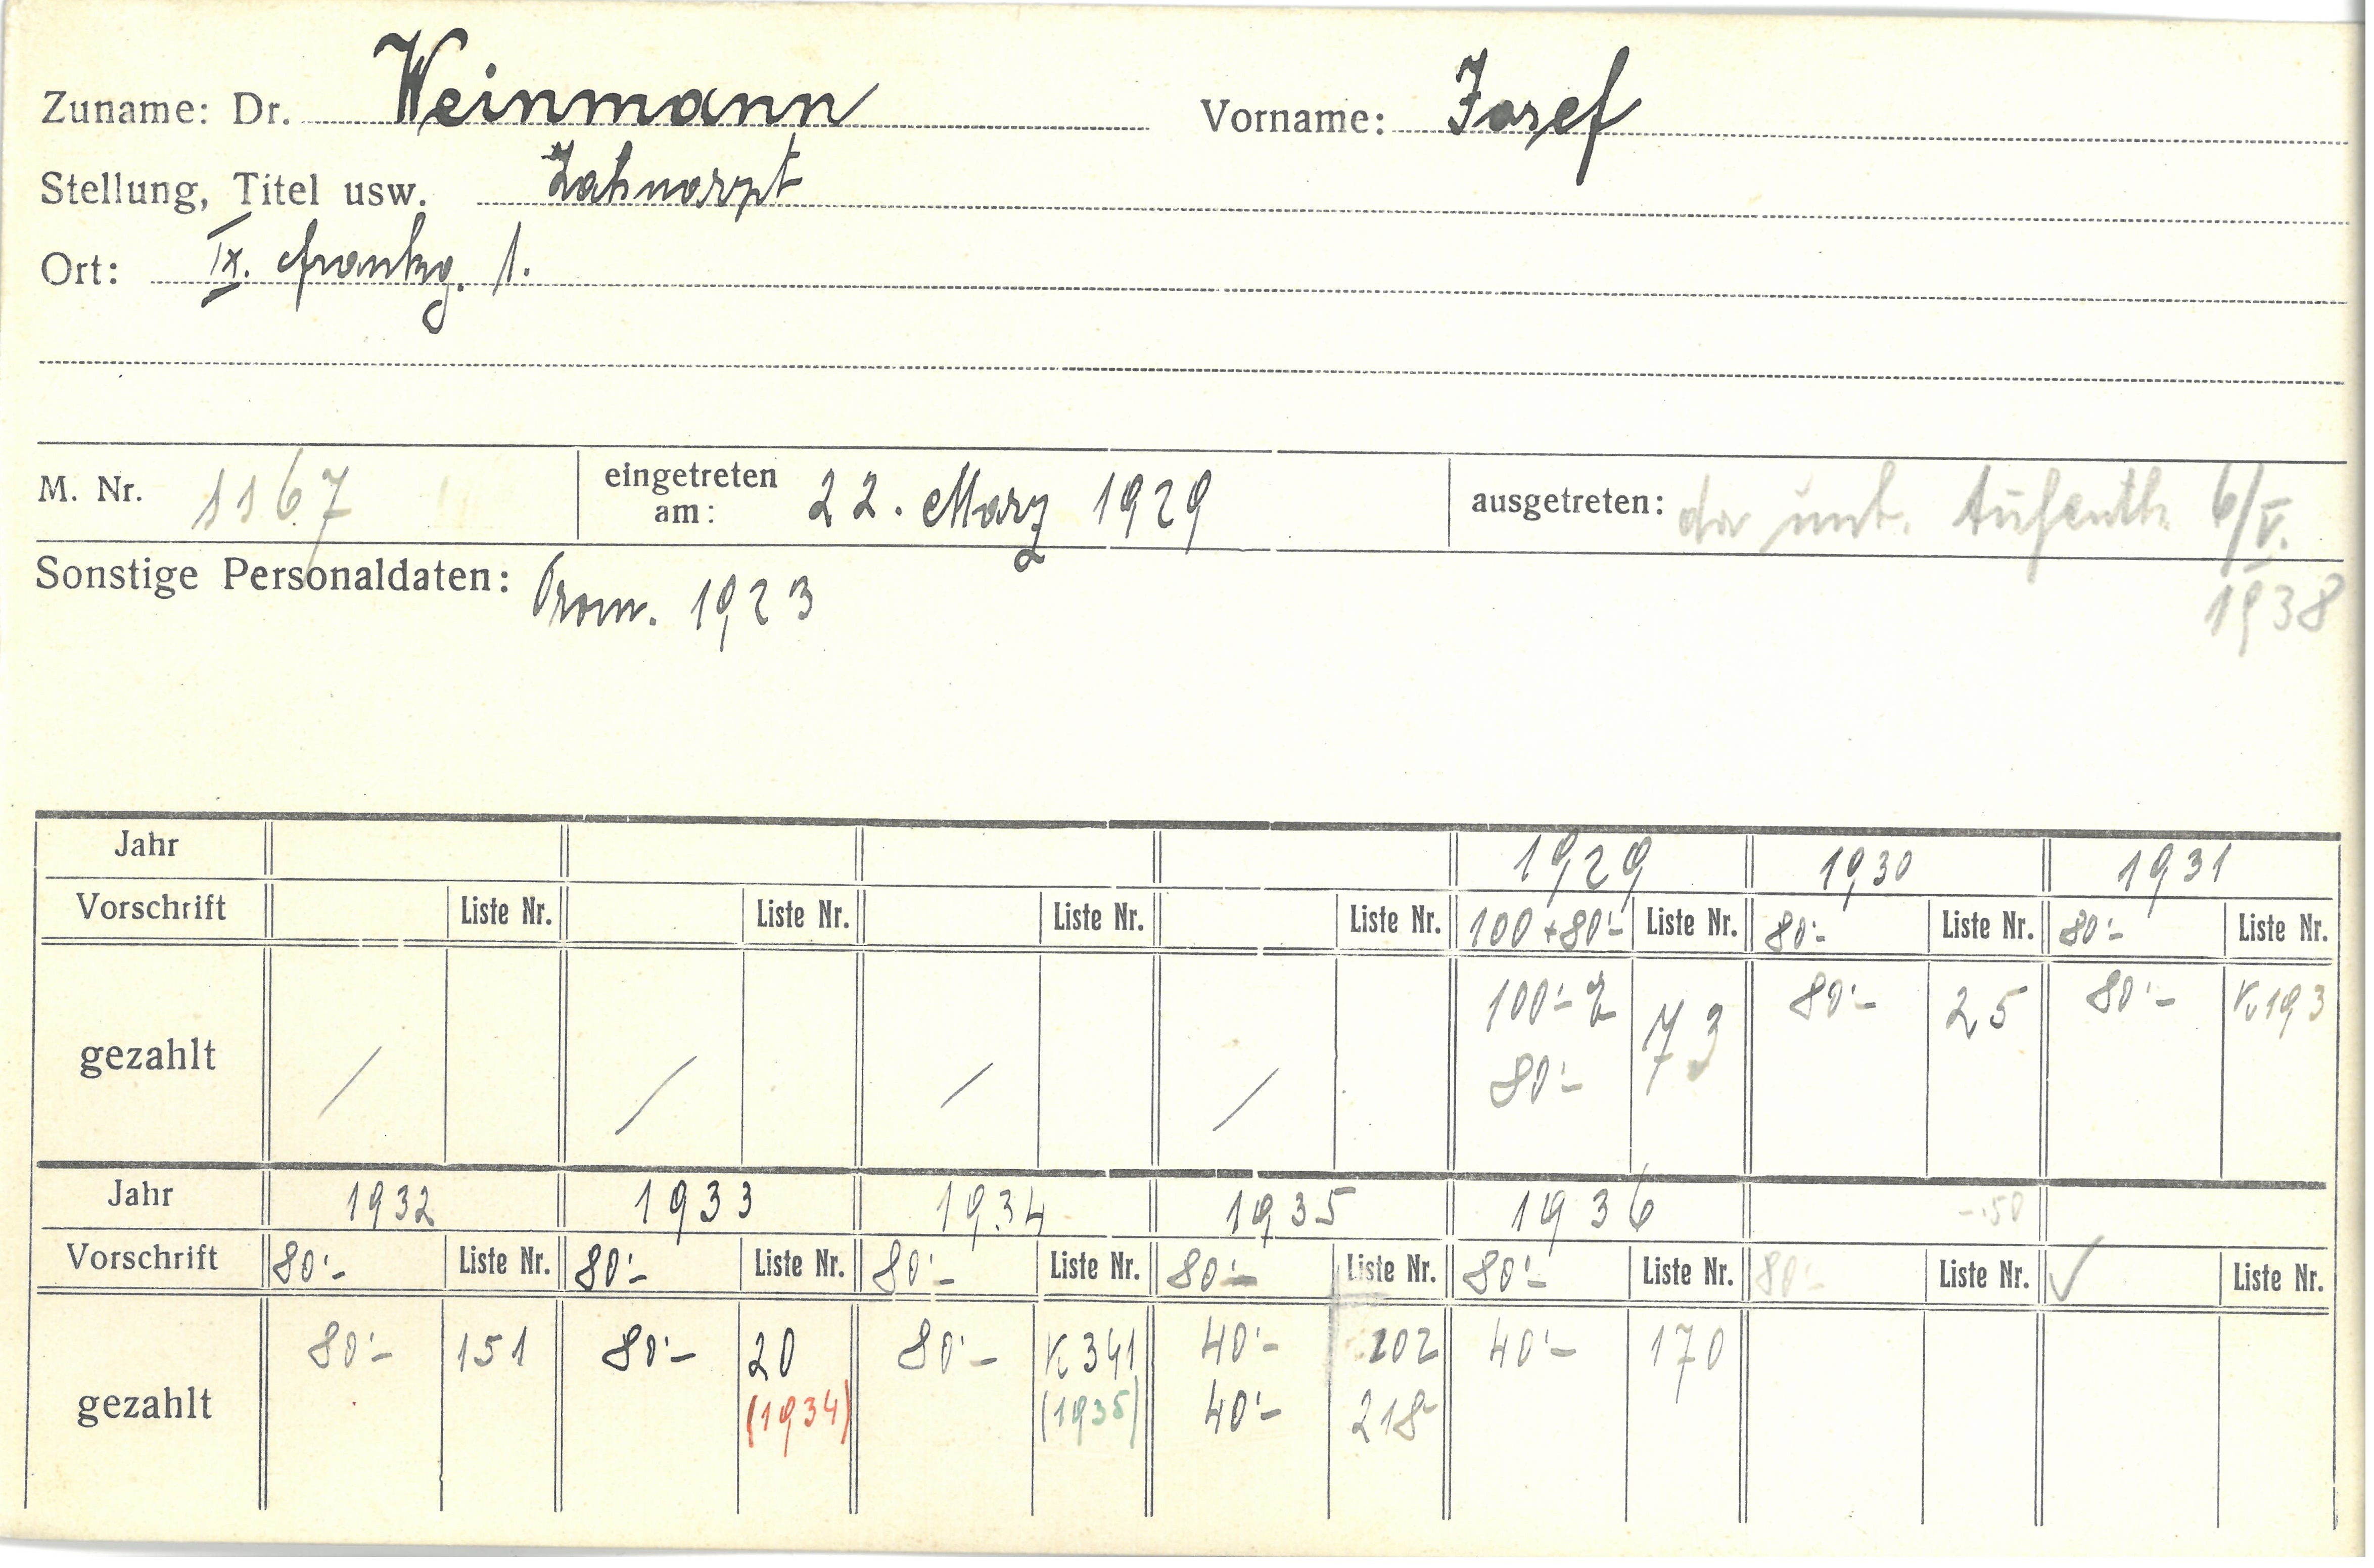 Zuname: Dr. Weinmann Vorname: Josef
Stellung, Titel usw. Zahnarzt
Ort: IX. Frankg. 1.
M. Nr. 1167 eingetreten am: 22. März 1929 ausgetreten: da unb. Aufenth. 6/V. 1938
Sonstige Personaldaten: Prom. 1923
Jahr 1929 1930 1931
Vorschrift Liste Nr. Liste Nr. Liste Nr. Liste Nr. 100+80'- Liste Nr. 80'- Liste Nr. 80'- Liste Nr.
gezahlt / / / / 100'- 73 80'- 25 80'- K193
80'-
Jahr 1932 1933 1934 1935 1936 -.50
Vorschrift 80'- Liste Nr. 80'- Liste Nr. 80'- Liste Nr. 80'- Liste Nr. 80'- Liste Nr. 80'- Liste Nr. ✓ Liste Nr.
gezahlt 80'- 151 80'- 20 80'- K341 40'- 202 40'- 170
(1934) (1935) 40'- 218